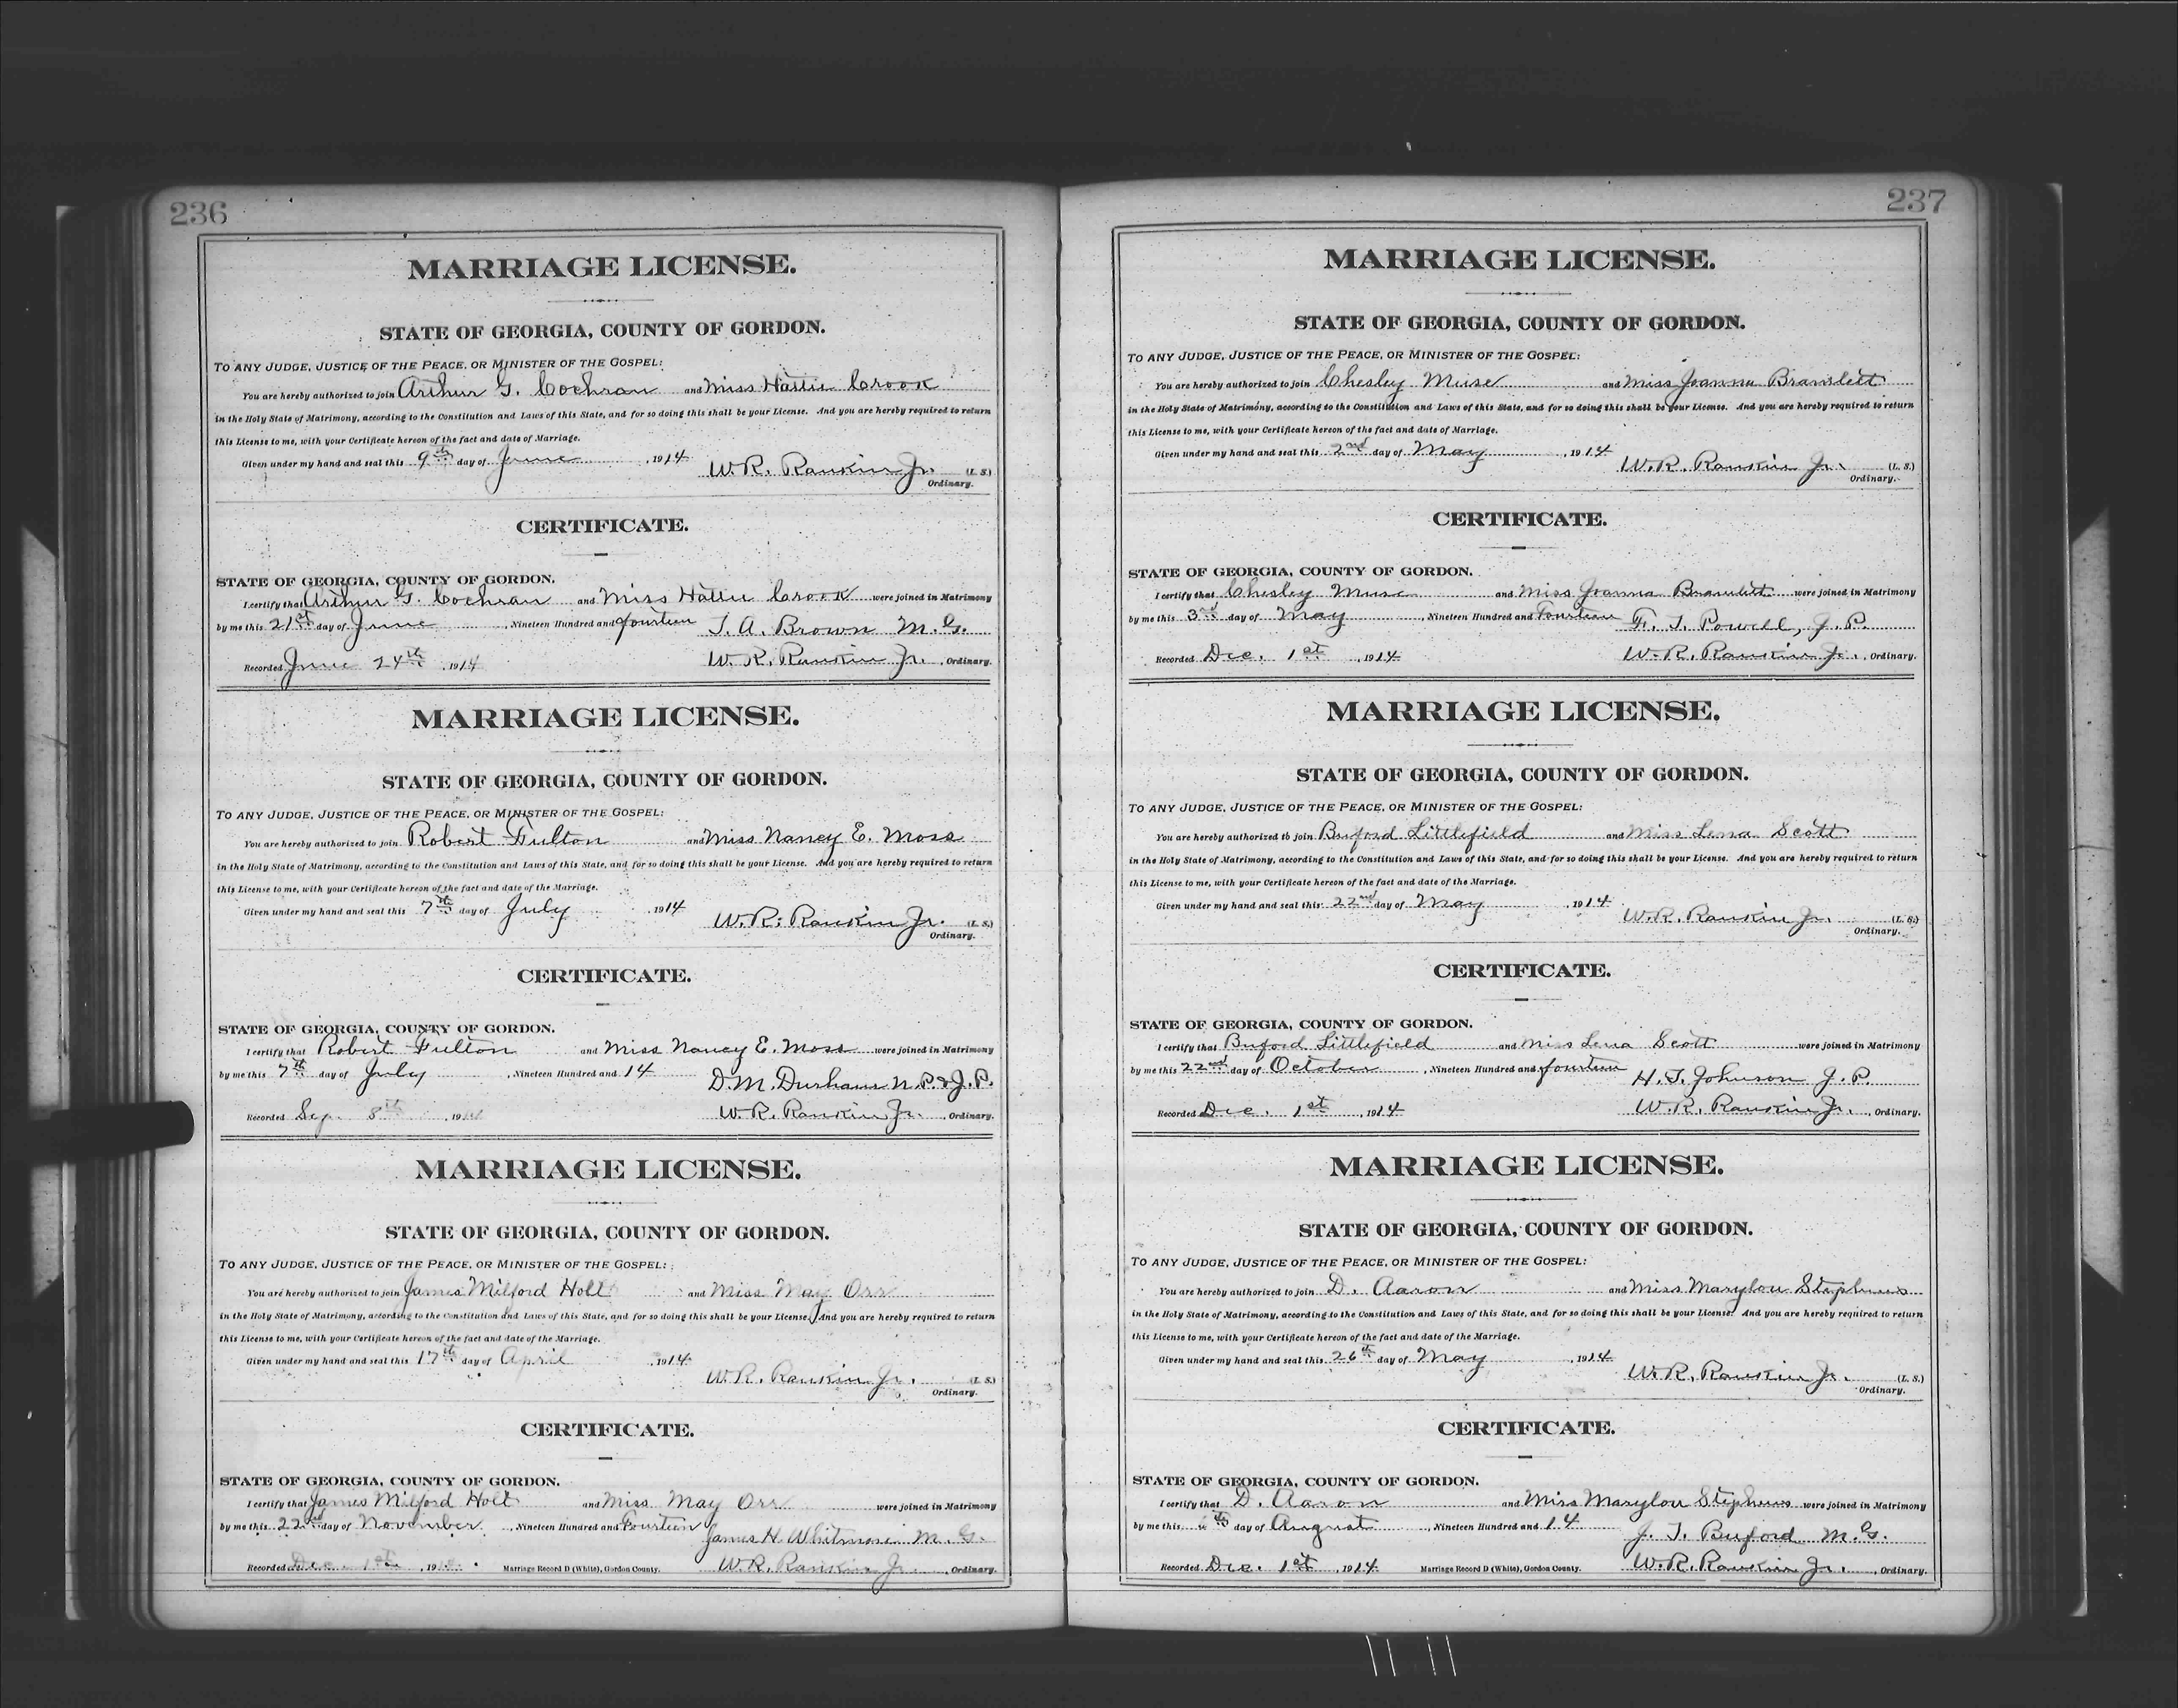 236
MARRIAGE LICENSE.
STATE OF GEORGIA, COUNTY OF GORDON.
TO ANY JUDGE, JUSTICE OF THE PEACE, OR MINISTER OF THE GOSPEL:
You are hereby authorized to join Arthur G. Cochran and Miss Hattie Crook
in the Holy State of Matrimony, according to the Constitution and Laws of this State, and for so doing this shall be your License. And you are hereby required to return
this License to me, with your Certificate hereon of the fact and date of Marriage.
Given under my hand and seal this 9th day of June, 1914
W. R. Rankin Jr. (L. S.)
Ordinary.
CERTIFICATE.
STATE OF GEORGIA, COUNTY OF GORDON.
I certify that Arthur G. Cochran and Miss Hattie Crook were joined in Matrimony
by me this 21st day of June, Nineteen Hundred and fourteen J. A. Brown M. G.
Recorded June 24th, 1914 W. R. Rankin Jr., Ordinary.
MARRIAGE LICENSE.
STATE OF GEORGIA, COUNTY OF GORDON.
TO ANY JUDGE, JUSTICE OF THE PEACE, OR MINISTER OF THE GOSPEL:
You are hereby authorized to join Robert Fulton and Miss Nancy E. Moss
in the Holy State of Matrimony, according to the Constitution and Laws of this State, and for so doing this shall be your License. And you are hereby required to return
this License to me, with your Certificate hereon of the fact and date of the Marriage.
Given under my hand and seal this 7th day of July, 1914
W. R. Rankin Jr. (L. S.)
Ordinary.
CERTIFICATE.
STATE OF GEORGIA, COUNTY OF GORDON.
I certify that Robert Fulton and Miss Nancy E. Moss were joined in Matrimony
by me this 7th day of July, Nineteen Hundred and 14 D. M. Durham N. P. & J. P.
Recorded Sep. 8th, 1914 W. R. Rankin Jr., Ordinary.
MARRIAGE LICENSE.
STATE OF GEORGIA, COUNTY OF GORDON.
TO ANY JUDGE, JUSTICE OF THE PEACE, OR MINISTER OF THE GOSPEL:
You are hereby authorized to join James Milford Holt and Miss May Orr
in the Holy State of Matrimony, according to the Constitution and Laws of this State, and for so doing this shall be your License. And you are hereby required to return
this License to me, with your Certificate hereon of the fact and date of the Marriage.
Given under my hand and seal this 17th day of April, 1914
W. R. Rankin Jr. (L. S.)
Ordinary.
CERTIFICATE.
STATE OF GEORGIA, COUNTY OF GORDON.
I certify that James Milford Holt and Miss May Orr were joined in Matrimony
by me this 22nd day of November, Nineteen Hundred and Fourteen James H. Whitmore M. G.
Recorded Dec. 1st, 191 Marriage Record D (White), Gordon County. W. R. Rankin Jr., Ordinary.
237
MARRIAGE LICENSE.
STATE OF GEORGIA, COUNTY OF GORDON.
TO ANY JUDGE, JUSTICE OF THE PEACE, OR MINISTER OF THE GOSPEL:
You are hereby authorized to join Chesley Muse and Miss Joanna Bramlett
in the Holy State of Matrimony, according to the Constitution and Laws of this State, and for so doing this shall be your License. And you are hereby required to return
this License to me, with your Certificate hereon of the fact and date of Marriage.
Given under my hand and seal this 2nd day of May, 1914
W. R. Rankin Jr. (L. S.)
Ordinary.
CERTIFICATE.
STATE OF GEORGIA, COUNTY OF GORDON.
I certify that Chesley Muse and Miss Joanna Bramlett were joined in Matrimony
by me this 3rd day of May, Nineteen Hundred and Fourteen F. J. Powell, J. P.
Recorded Dec. 1st, 1914 W. R. Rankin Jr., Ordinary.
MARRIAGE LICENSE.
STATE OF GEORGIA, COUNTY OF GORDON.
TO ANY JUDGE, JUSTICE OF THE PEACE, OR MINISTER OF THE GOSPEL:
You are hereby authorized to join Buford Littlefield and Miss Lena Scott
in the Holy State of Matrimony, according to the Constitution and Laws of this State, and for so doing this shall be your License. And you are hereby required to return
this License to me, with your Certificate hereon of the fact and date of the Marriage.
Given under my hand and seal this 22nd day of May, 1914
W. R. Rankin Jr. (L. S.)
Ordinary.
CERTIFICATE.
STATE OF GEORGIA, COUNTY OF GORDON.
I certify that Buford Littlefield and Miss Lena Scott were joined in Matrimony
by me this 22nd day of October, Nineteen Hundred and fourteen H. J. Johnson J. P.
Recorded Dec. 1st, 1914 W. R. Rankin Jr., Ordinary.
MARRIAGE LICENSE.
STATE OF GEORGIA, COUNTY OF GORDON.
TO ANY JUDGE, JUSTICE OF THE PEACE, OR MINISTER OF THE GOSPEL:
You are hereby authorized to join D. Aaron and Miss Marylou Stephens
in the Holy State of Matrimony, according to the Constitution and Laws of this State, and for so doing this shall be your License. And you are hereby required to return
this License to me, with your Certificate hereon of the fact and date of the Marriage.
Given under my hand and seal this 26th day of May, 1914
W. R. Rankin Jr. (L. S.)
Ordinary.
CERTIFICATE.
STATE OF GEORGIA, COUNTY OF GORDON.
I certify that D. Aaron and Miss Marylou Stephens were joined in Matrimony
by me this day of August, Nineteen Hundred and 14 J. T. Buford M. G.
Recorded Dec. 1st, 1914 Marriage Record D (White), Gordon County. W. R. Rankin Jr., Ordinary.